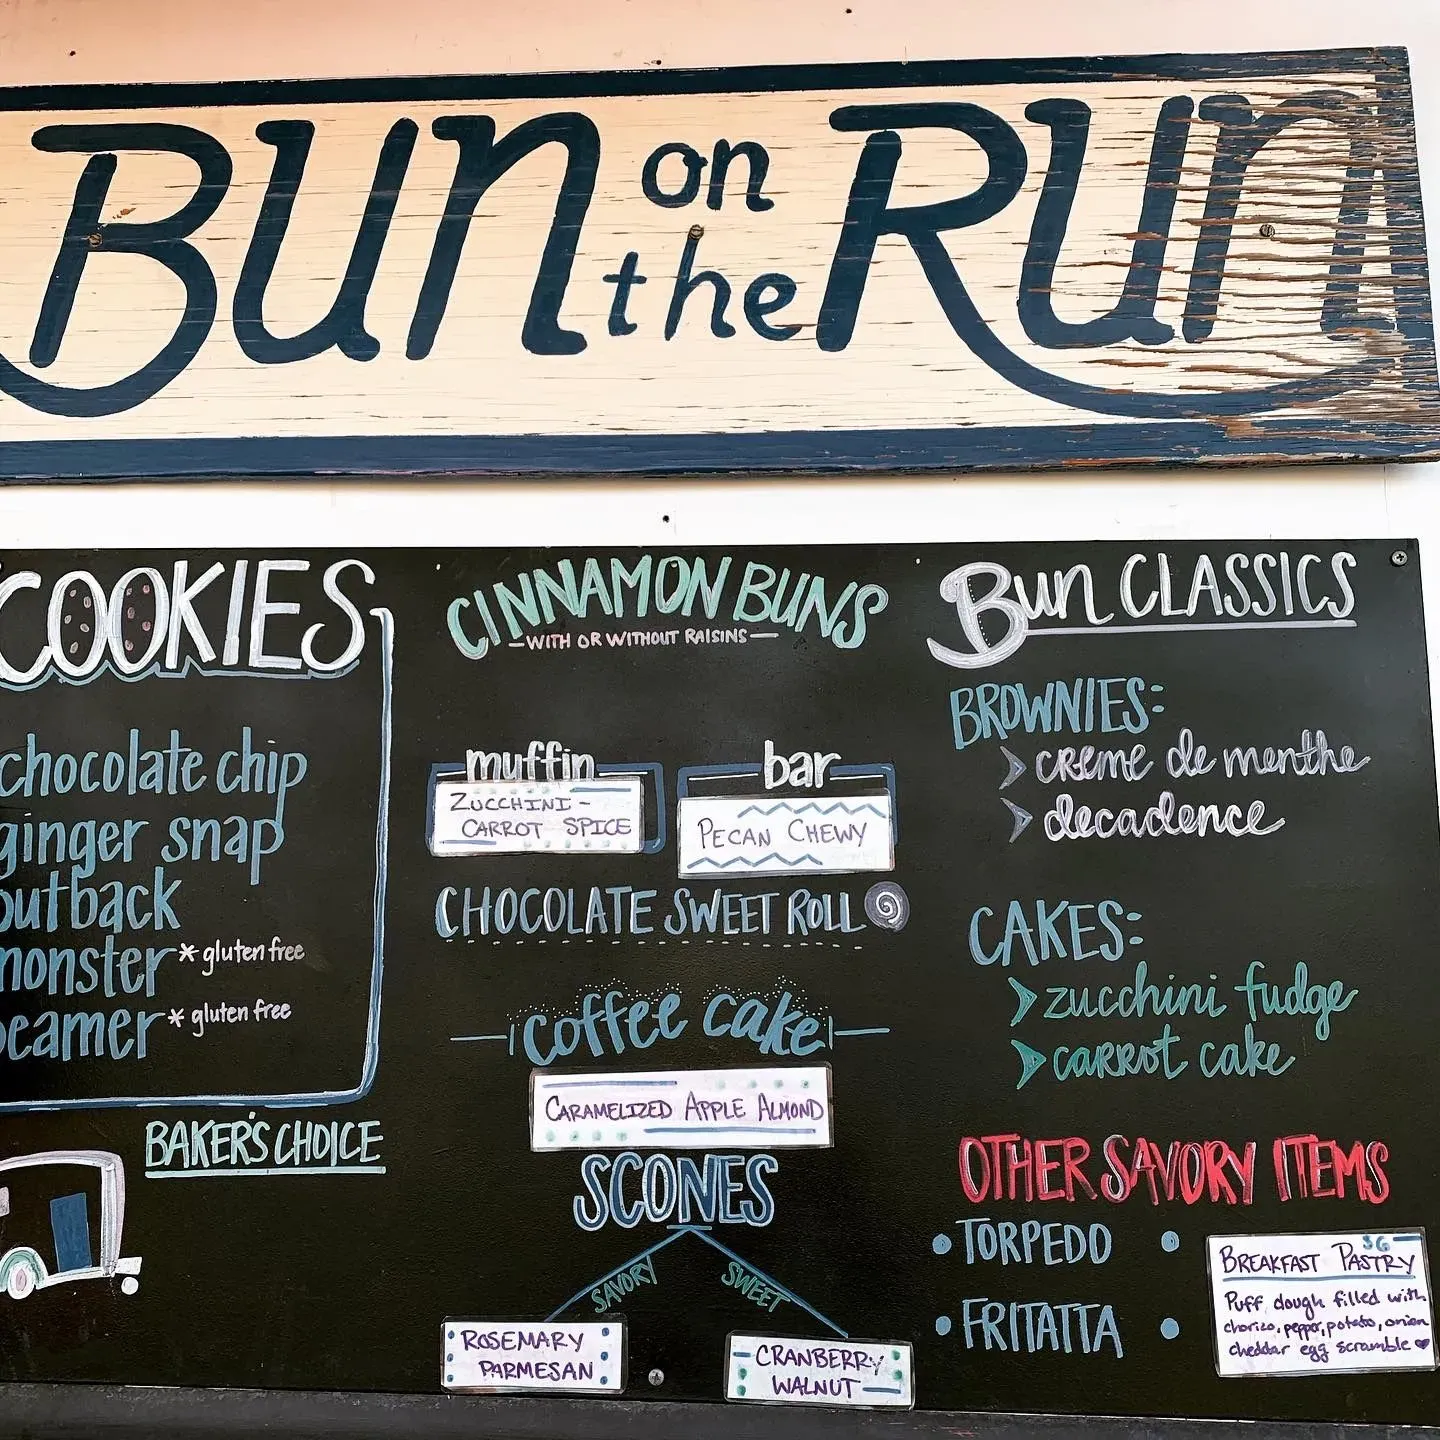 BUN on the RUN
COOKIES
chocolate chip
ginger snap
outback
monster * gluten free
beamer * gluten free
BAKER'S CHOICE
CINNAMON BUNS
—WITH OR WITHOUT RAISINS—
muffin
ZUCCHINI-
CARROT SPICE
bar
PECAN CHEWY
CHOCOLATE SWEET ROLL
coffee cake
CARAMELIZED APPLE ALMOND
SCONES
SAVORY
SWEET
ROSEMARY
PARMESAN
CRANBERRY
WALNUT
Bun CLASSICS
BROWNIES:
creme de menthe
decadence
CAKES:
zucchini fudge
carrot cake
OTHER SAVORY ITEMS
• TORPEDO •
• FRITATTA •
$6
BREAKFAST PASTRY
Puff dough filled with
chorizo, pepper, potato, onion
cheddar egg scramble ♥